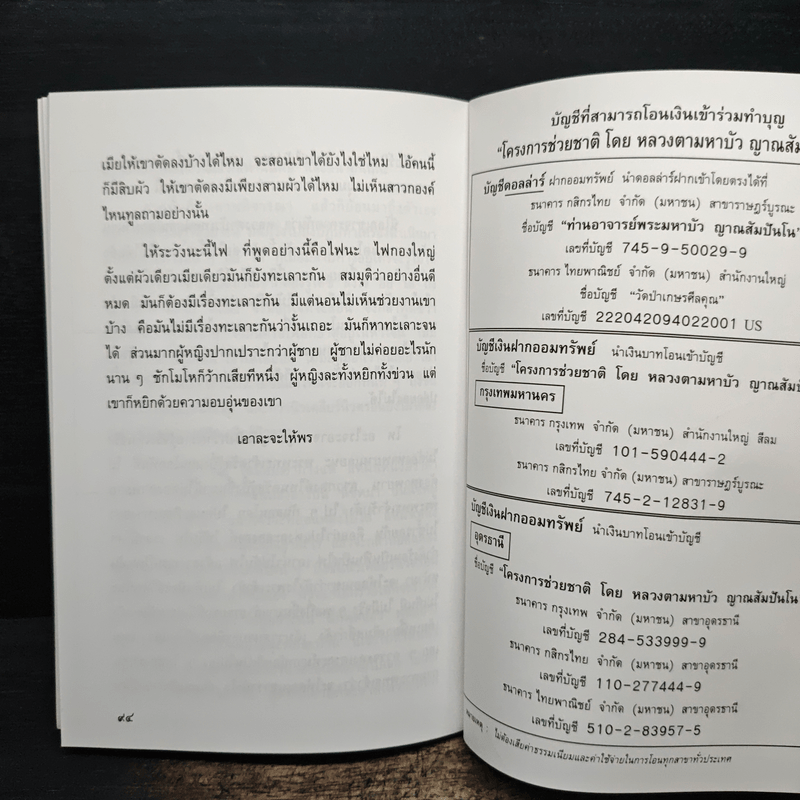 เมียให้เขาตัดลงบ้างได้ไหม จะสอนเขาได้ยังไงใช่ไหม ไอ้คนนี้
ก็มีสิบผัว ให้เขาตัดลงมีเพียงสามผัวได้ไหม ไม่เห็นสาวกองค์
ไหนทูลถามอย่างนั้น
ให้ระวังนะนี้ไฟ ที่พูดอย่างนี้คือไฟนะ ไฟกองใหญ่
ตั้งแต่ผัวเดียวเมียเดียวมันก็ยังทะเลาะกัน สมมุติว่าอย่างอื่นดี
หมด มันก็ต้องมีเรื่องทะเลาะกัน มีแต่นอนไม่เห็นช่วยงานเขา
บ้าง คือมันไม่มีเรื่องทะเลาะกันว่างั้นเถอะ มันก็หาทะเลาะจน
ได้ ส่วนมากผู้หญิงปากเปราะกว่าผู้ชาย ผู้ชายไม่ค่อยอะไรนัก
นาน ๆ ชักโมโหก็ว้ากเสียทีหนึ่ง ผู้หญิงละทั้งหยิกทั้งข่วน แต่
เขาก็หยิกด้วยความอบอุ่นของเขา
เอาละจะให้พร
๙๔
บัญชีที่สามารถโอนเงินเข้าร่วมทำบุญ
"โครงการช่วยชาติ โดย หลวงตามหาบัว ญาณสัม
บัญชีดอลล่าร์ ฝากออมทรัพย์ นำดอลล่าร์ฝากเข้าโดยตรงได้ที่
ธนาคาร กสิกรไทย จำกัด (มหาชน) สาขาราษฎร์บูรณะ
ชื่อบัญชี "ท่านอาจารย์พระมหาบัว ญาณสัมปันโน"
เลขที่บัญชี 745-9-50029-9
ธนาคาร ไทยพาณิชย์ จำกัด (มหาชน) สำนักงานใหญ่
ชื่อบัญชี "วัดป่าเกษรศีลคุณ"
เลขที่บัญชี 222042094022001 US
บัญชีเงินฝากออมทรัพย์ นำเงินบาทโอนเข้าบัญชี
ชื่อบัญชี "โครงการช่วยชาติ โดย หลวงตามหาบัว ญาณสัมปั
กรุงเทพมหานคร
ธนาคาร กรุงเทพ จำกัด (มหาชน) สำนักงานใหญ่ สีลม
เลขที่บัญชี 101-590444-2
ธนาคาร กสิกรไทย จำกัด (มหาชน) สาขาราษฎร์บูรณะ
เลขที่บัญชี 745-2-12831-9
บัญชีเงินฝากออมทรัพย์ นำเงินบาทโอนเข้าบัญชี
อุดรธานี
ชื่อบัญชี "โครงการช่วยชาติ โดย หลวงตามหาบัว ญาณสัมปันโน
ธนาคาร กรุงเทพ จำกัด (มหาชน) สาขาอุดรธานี
เลขที่บัญชี 284-533999-9
ธนาคาร กสิกรไทย จำกัด (มหาชน) สาขาอุดรธานี
เลขที่บัญชี 110-277444-9
ธนาคาร ไทยพาณิชย์ จำกัด (มหาชน) สาขาอุดรธานี
เลขที่บัญชี 510-2-83957-5
หมายเหตุ : ไม่ต้องเสียค่าธรรมเนียมและค่าใช้จ่ายในการโอนทุกสาขาทั่วประเทศ